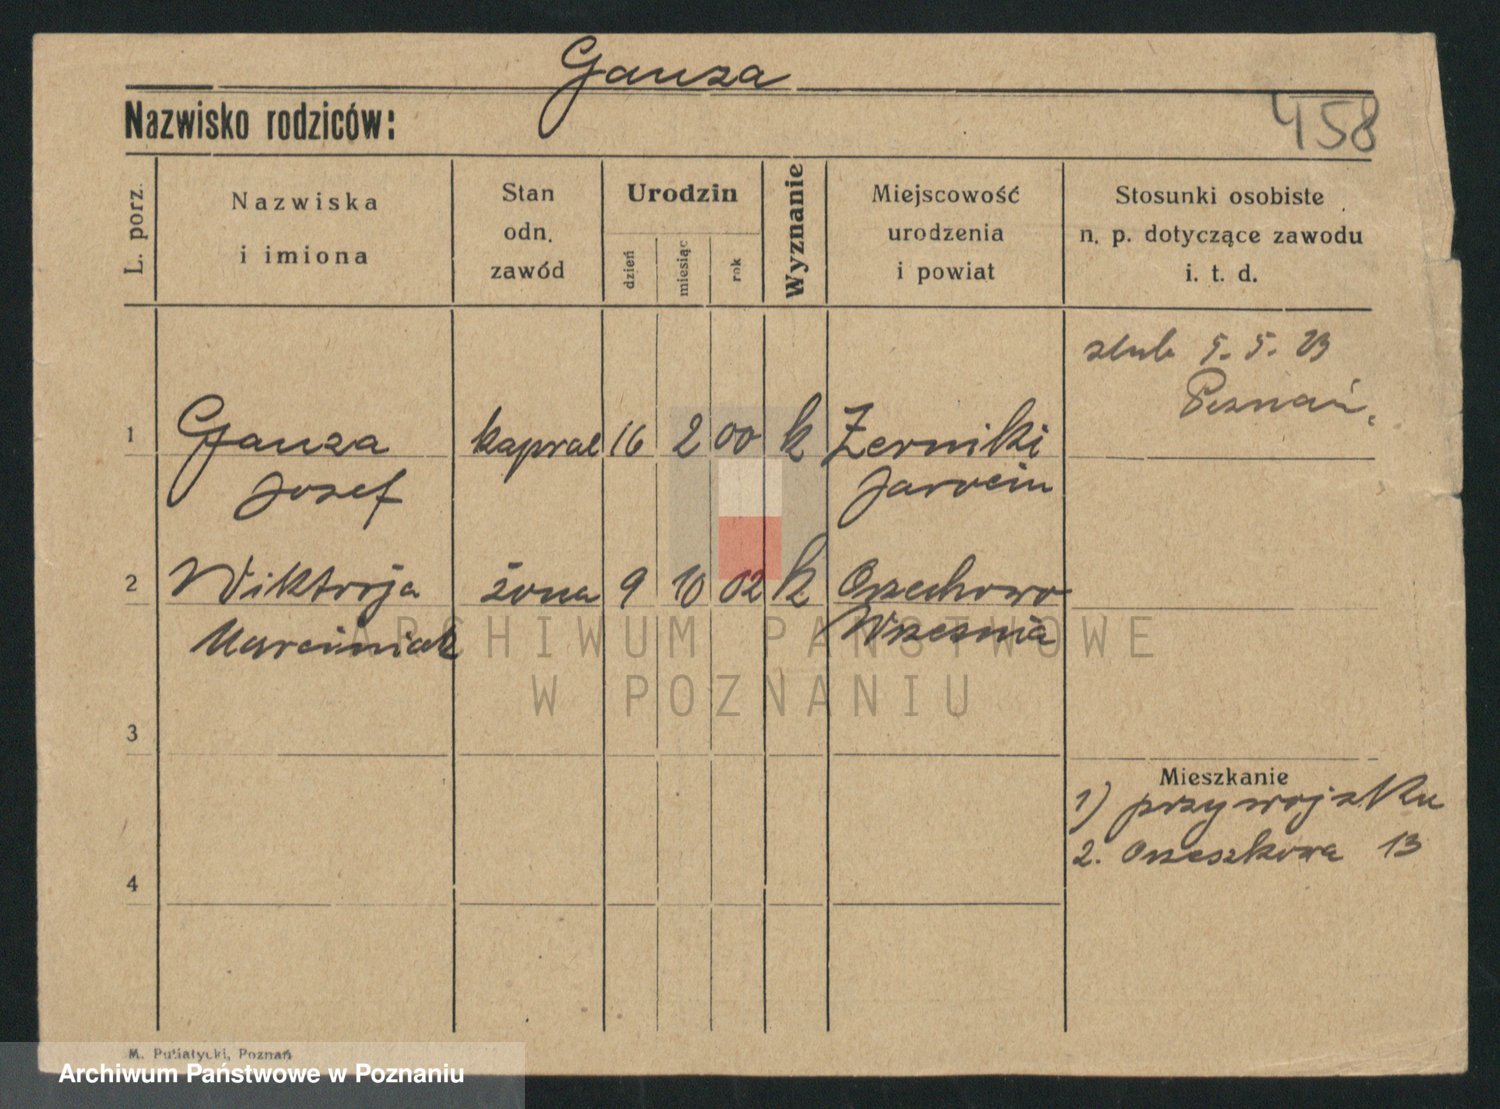 Ganza
Nazwisko rodziców:
458
L. porz.
Nazwiska
i imiona
Stan
odn.
zawód
Urodzin
dzień
miesiąc
rok
Wyznanie
Miejscowość
urodzenia
i powiat
Stosunki osobiste
n. p. dotyczące zawodu
i. t. d.
ślub 5. 5. 23
Poznań.
1 Ganza kapral 16 2 00 k Żerniki
Józef Jarocin
2 Wiktorja żona 9 10 02 k Orzechowo
Marciniak Września
ARCHIWUM PAŃSTWOWE
W POZNANIU
3
Mieszkanie
1) przy wojsku
2. Orzeszkowa 13
4
M. Putiatycki, Poznań
Archiwum Państwowe w Poznaniu